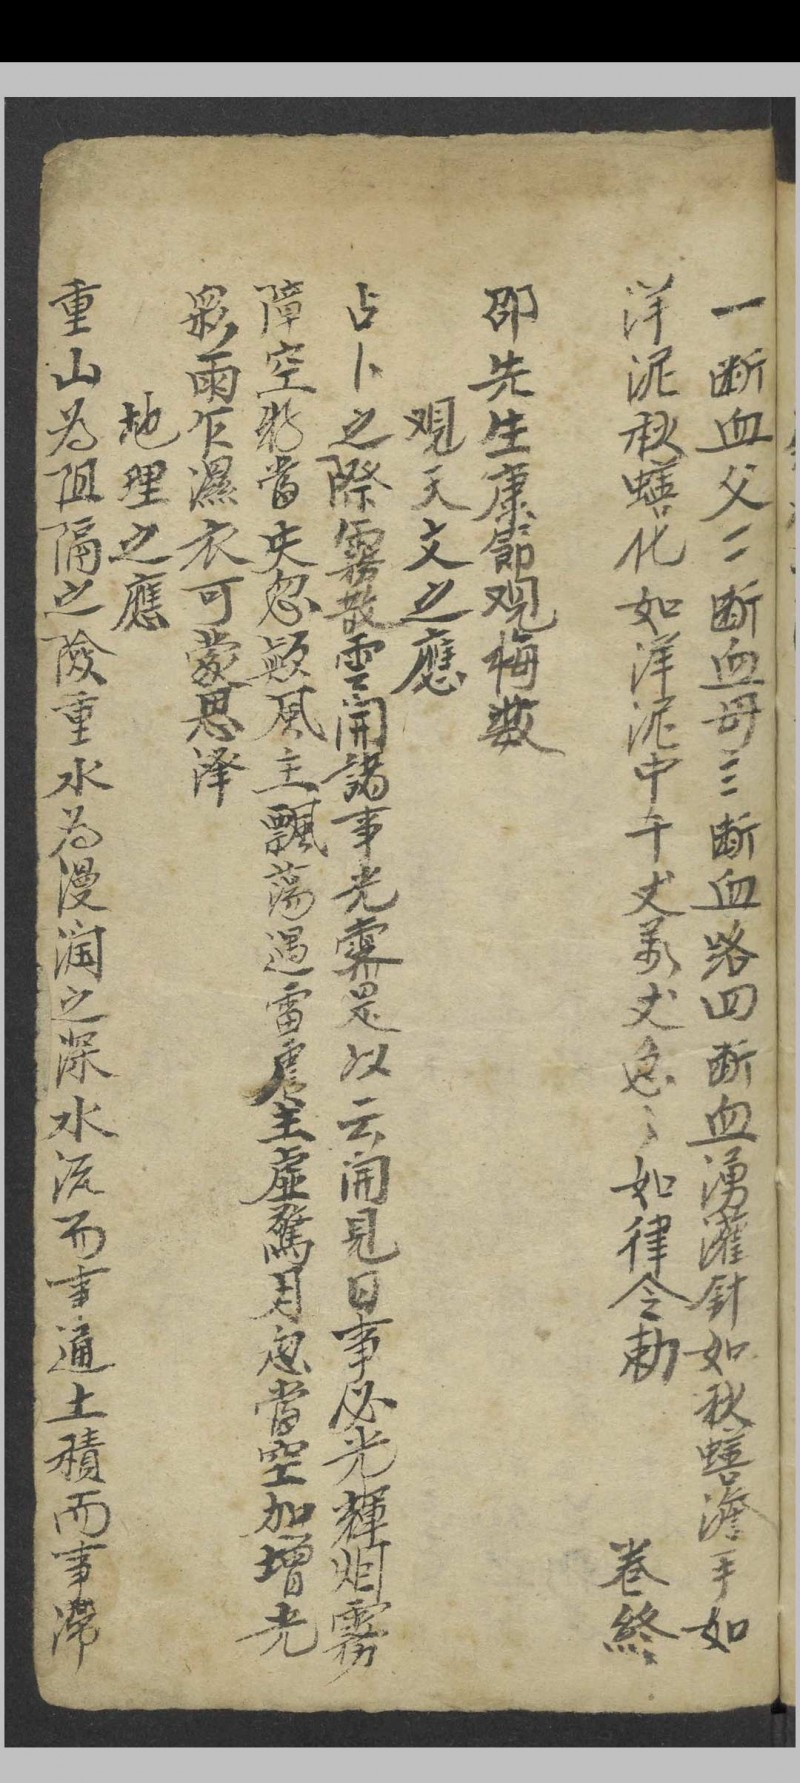 一断血父二断血母三断血路四断血湧灌针如秋蟮澹手如
洋泥秋蟮化如洋泥中千丈萬丈急々如律令勅
卷終
邵先生康節观梅数
观天文之應
占卜之際霧散雲開諸事光霽是以云開見日事必光輝烟霧
障空物當失忽颠風主飄蕩遇雷震主虛驚月忽當空加增光
彩雨乍濕衣可蒙恩泽
地理之應
重山為阻隔之險重水為漫潤之深水流而事通土積而事滯